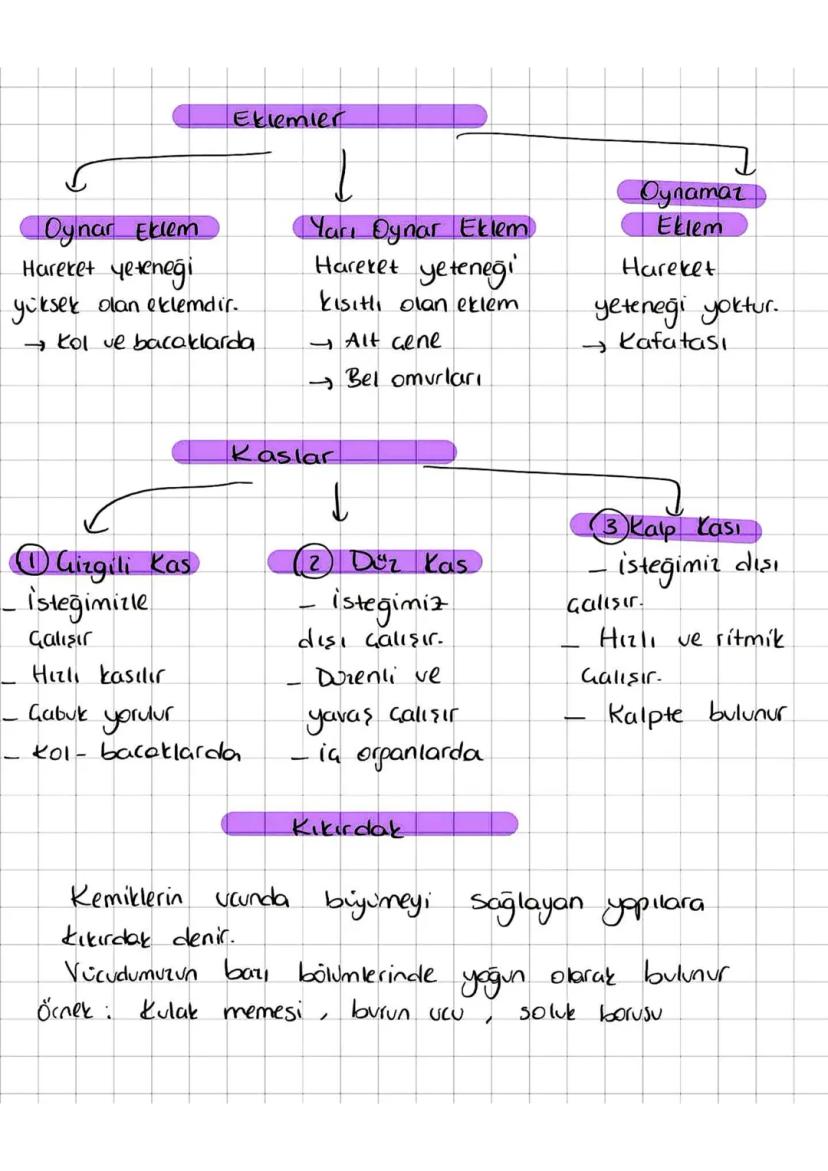 Eklemler
Oynar Eklem
Hareket yeteneği
yüksek olan eklemdir.
→ Kol ve bacaklarda
Yarı Oynar Eklem
Hareket yeteneği
kısıtlı olan eklem
→ Alt çene
→ Bel omurları
Oynamaz
Eklem
Hareket
yeteneği yoktur.
→ Kafatası
Kaslar
① Çizgili Kas
- isteğimizle
çalışır
- Hızlı kasılır
- Çabuk yorulur
- Kol - bacaklarda
② Düz Kas
- isteğimiz
dışı çalışır.
- Düzenli ve
yavaş çalışır
- iç organlarda
③ Kalp Kası
- isteğimiz dışı
çalışır.
- Hızlı ve ritmik
çalışır.
- Kalpte bulunur
Kıkırdak
Kemiklerin ucunda büyümeyi sağlayan yapılara
kıkırdak denir.
Vücudumuzun bazı bölümlerinde yoğun olarak bulunur
Örnek : Kulak memesi , burun ucu , soluk borusu